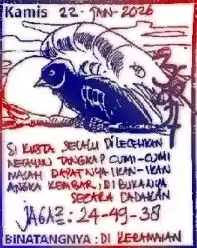 Kamis 22-JAN-2026
SI KUSTA SELALU DILECEHKAN
NELAYAN TANGKAP CUMI-CUMI
MALAH DAPATNYA IKAN-IKAN
ANGKA KEMBAR, DI BUKANYA
SECARA DADAKAN
JAGA2: 24-49-38
BINATANGNYA: DI KERAMAIAN